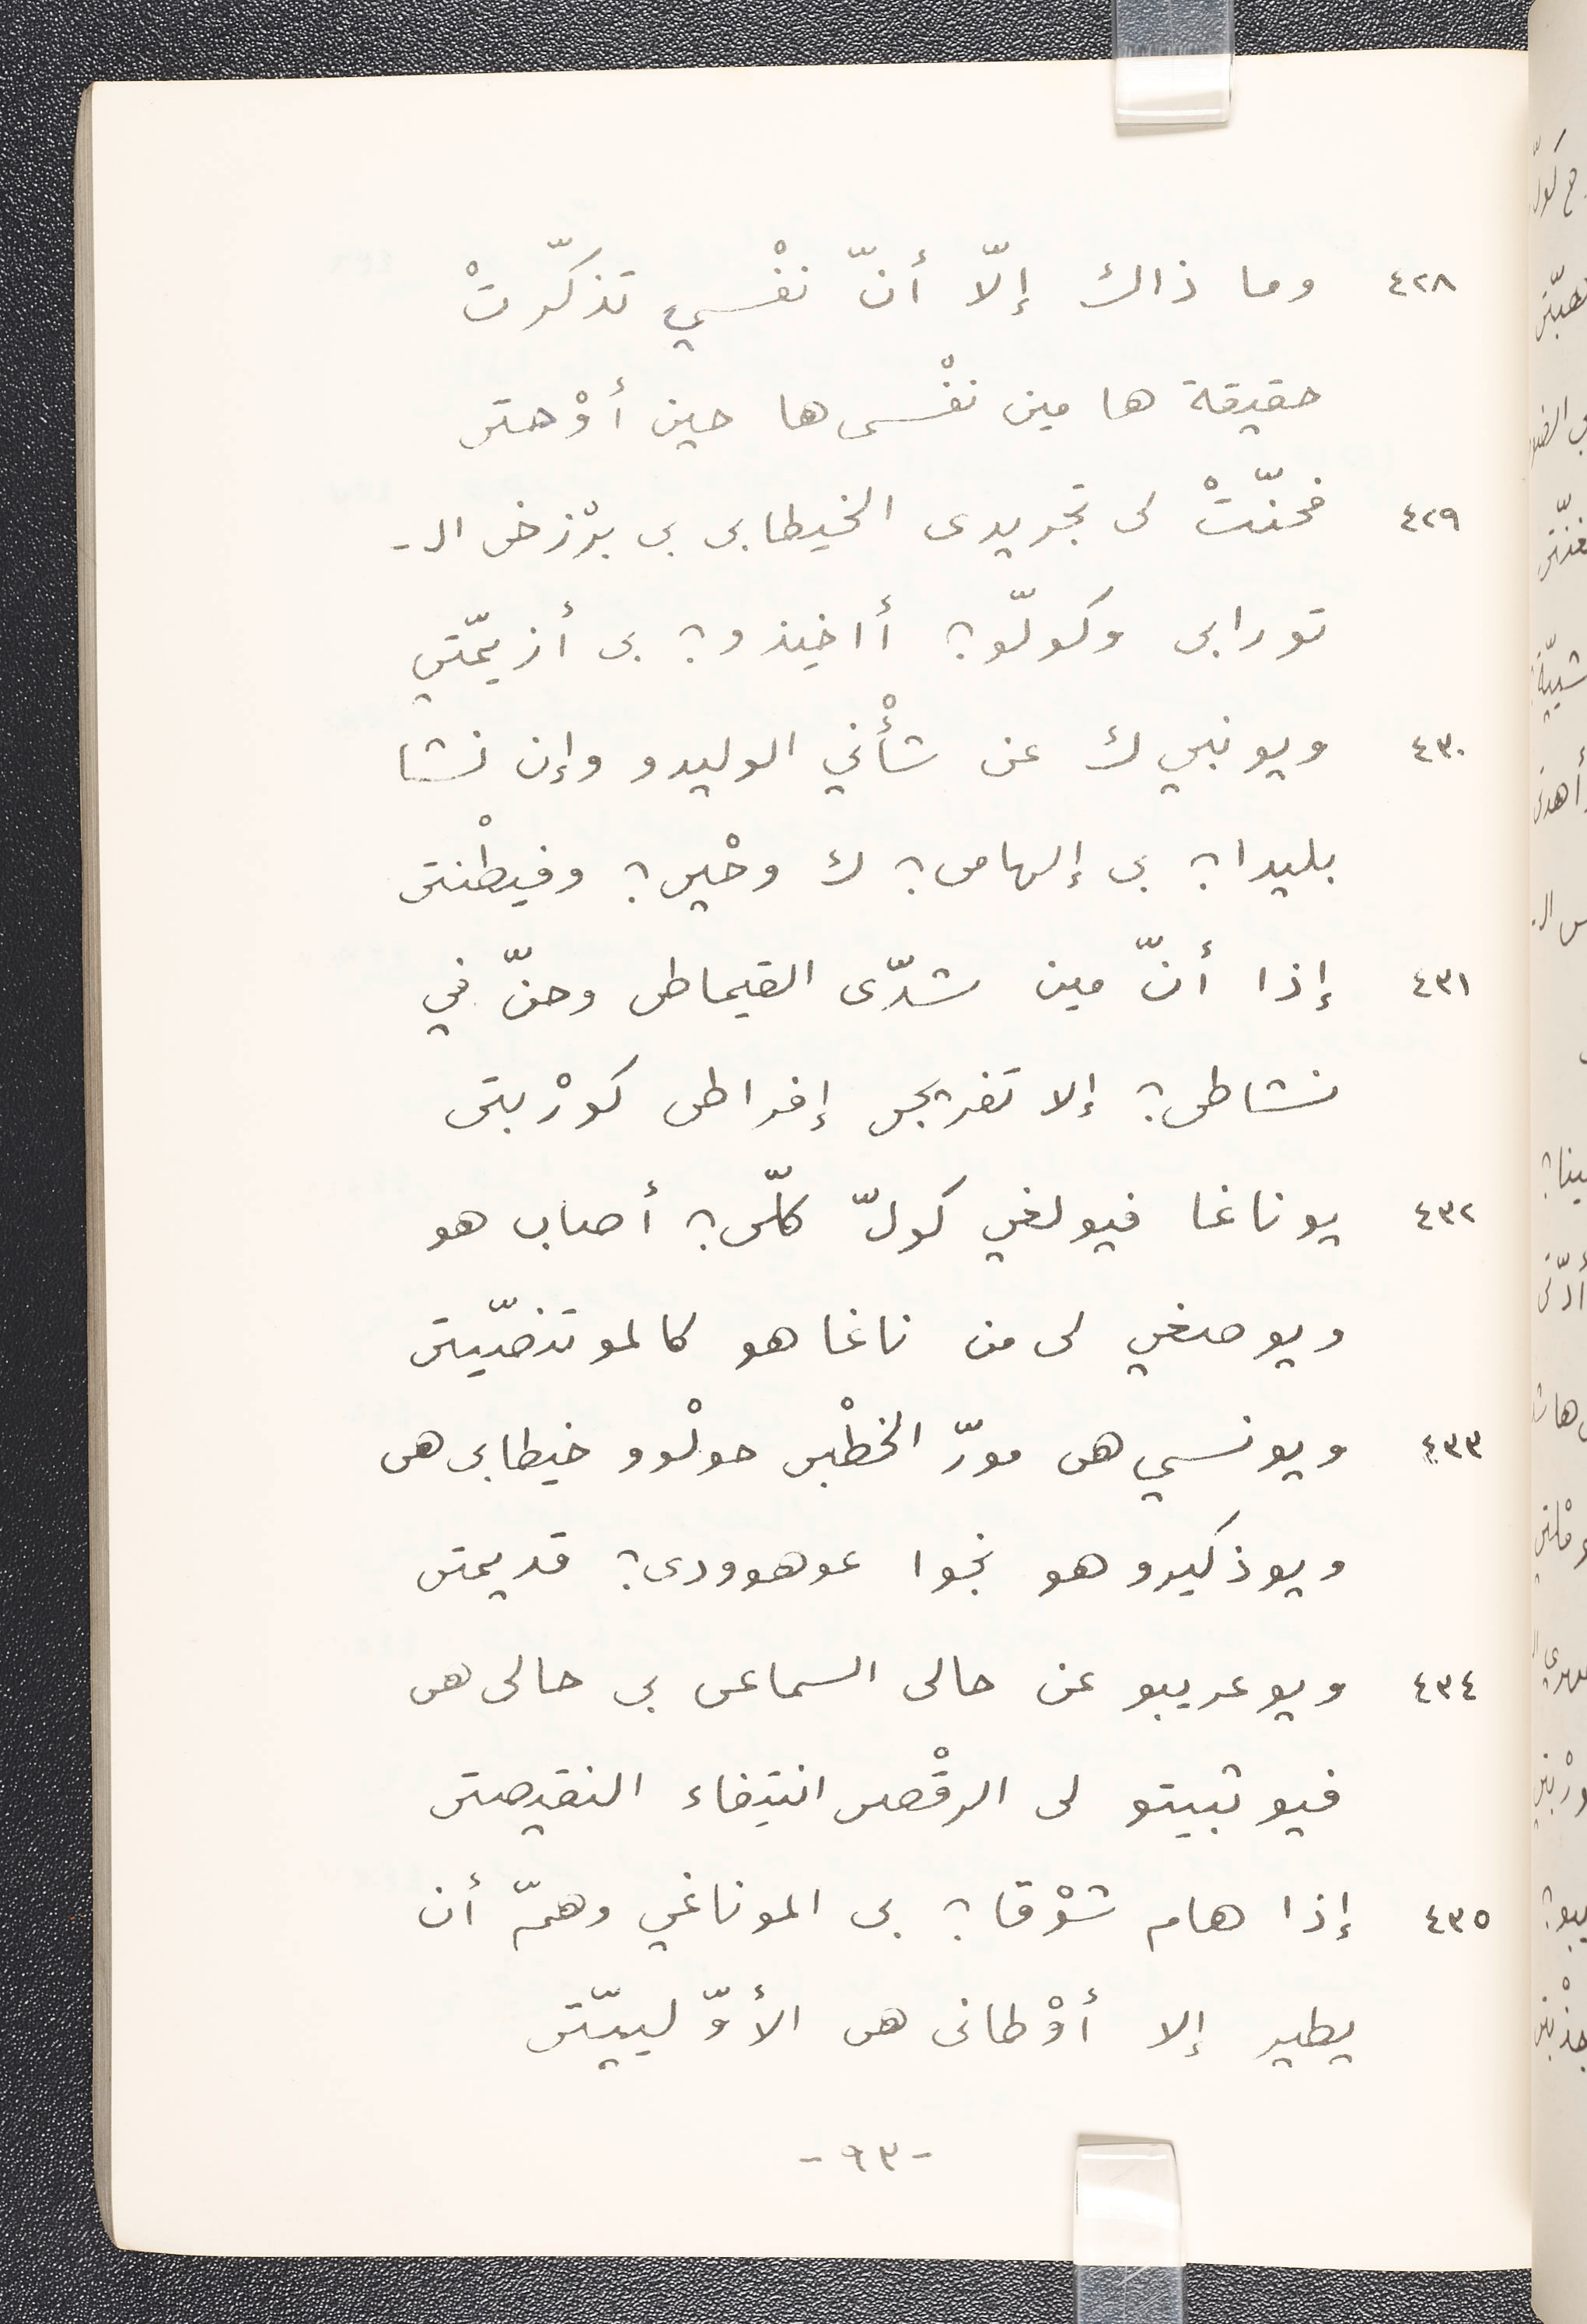 ٤٢٨ وما ذاك إلّا أنّ نفْسي تذكّرتْ
حقيقة ها مين نفْسى ها حين أوْحتى
٤٢٩ فحنّتْ لى تجريدى الخيطابى بى برْزخى الـ-
تورابى وكولّو؟ أاخيذو؟ بى أزيمّتي
٤٣٠ ويونبي ك عن شأْني الوليدو وإن نشا
بليدا؟ بى إلهامى؟ ك وحْيى؟ وفيطْنتى
٤٣١ إذا أنّ مين شدّى القيماطى وحنّ في
نشاطى؟ إلا تفريجى إفراطى كورْبتى
٤٣٢ يوناغا فيولغي كولّ كلّى؟ أصاب هو
ويوصغي لى من ناغا هو كالموتنصّيتى
٤٣٣ ويونسي هى مورّ الخطْبى حولْوو خيطابى هى
ويوذكيرو هو نجوا عوهوودى؟ قديمتى
٤٣٤ ويوعريبو عن حالى السماعى بى حالى هى
فيوثبيتو لى الرقْصى انتيفاء النقيصتى
٤٣٥ إذا هام شوْقا؟ بى الموناغي وهمّ أن
يطير إلا أوْطانى هى الأوّلييّتى
-٩٣-